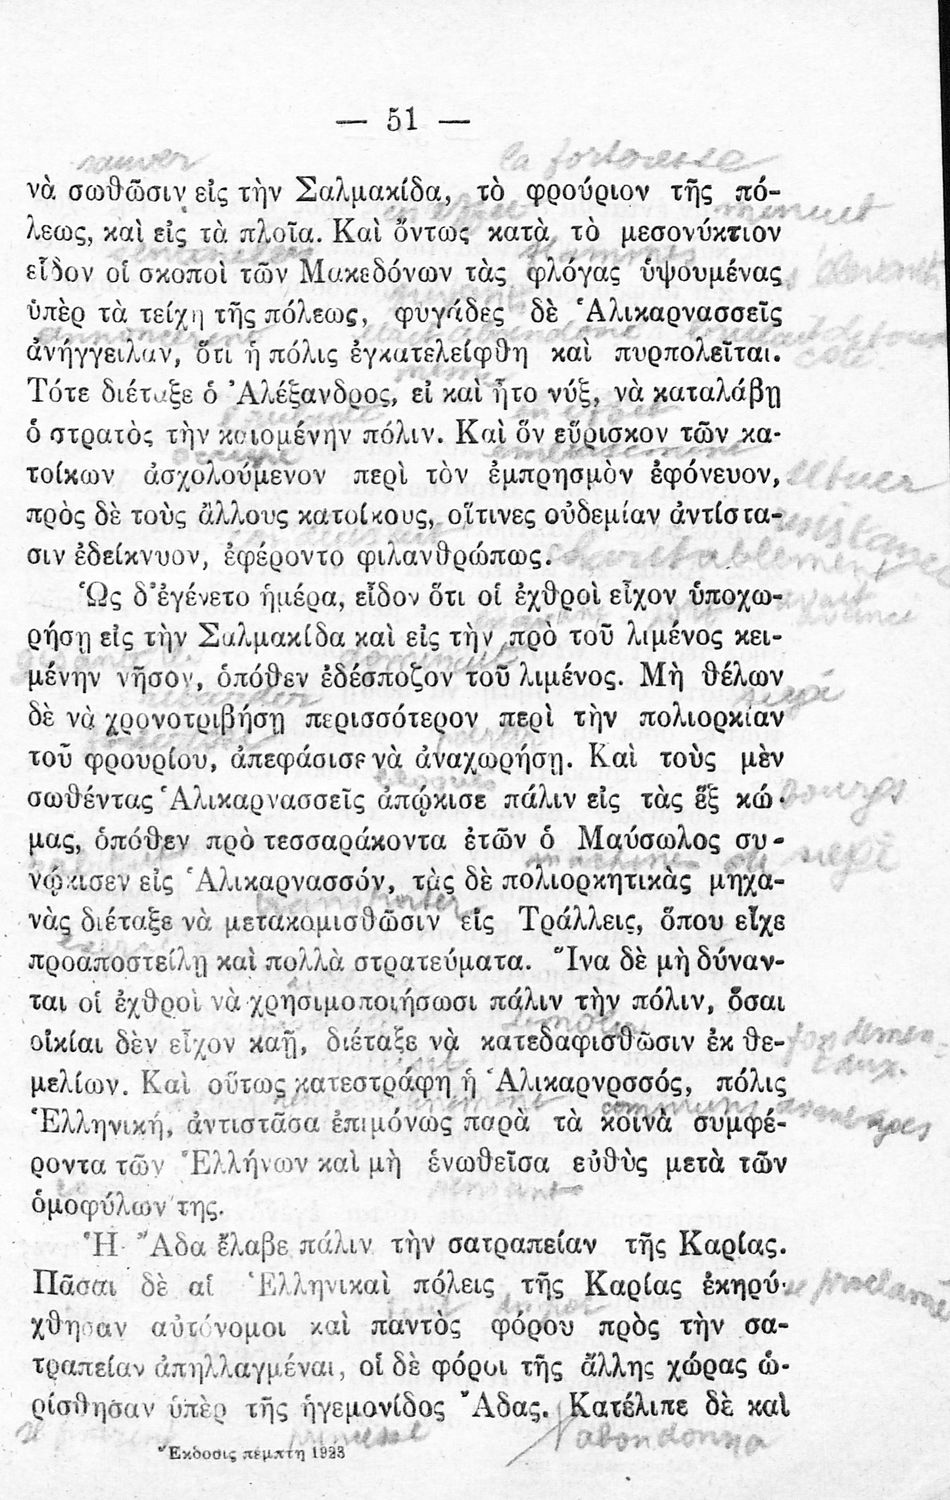 — 51 —
sauver la forteresse
νὰ σωθῶσιν εἰς τὴν Σαλμακίδα, τὸ φρούριον τῆς πό-
en effet minuit
λεως, καὶ εἰς τὰ πλοῖα. Καὶ ὄντως κατὰ τὸ μεσονύκτιον
flammes
εἶδον οἱ σκοποὶ τῶν Μακεδόνων τὰς φλόγας ὑψουμένας
ὑπὲρ τὰ τείχη τῆς πόλεως, φυγάδες δὲ Ἁλικαρνασσεῖς
ἀνήγγειλαν, ὅτι ἡ πόλις ἐγκατελείφθη καὶ πυρπολεῖται.
même
Τότε διέταξε ὁ Ἀλέξανδρος, εἰ καὶ ἦτο νύξ, νὰ καταλάβῃ
ὁ στρατὸς τὴν καιομένην πόλιν. Καὶ ὃν εὕρισκον τῶν κα-
occupé
τοίκων ἀσχολούμενον περὶ τὸν ἐμπρησμὸν ἐφόνευον,
πρὸς δὲ τοὺς ἄλλους κατοίκους, οἵτινες οὐδεμίαν ἀντίστα-
σιν ἐδείκνυον, ἐφέροντο φιλανθρώπως. charitablement
Ὡς δ' ἐγένετο ἡμέρα, εἶδον ὅτι οἱ ἐχθροὶ εἶχον ὑποχω-
ρήσῃ εἰς τὴν Σαλμακίδα καὶ εἰς τὴν πρὸ τοῦ λιμένος κει-
μένην νῆσον, ὁπόθεν ἐδέσποζον τοῦ λιμένος. Μὴ θέλων
retarder siegé
δὲ νὰ χρονοτριβήσῃ περισσότερον περὶ τὴν πολιορκίαν
τοῦ φρουρίου, ἀπεφάσισε νὰ ἀναχωρήσῃ. Καὶ τοὺς μὲν
σωθέντας Ἁλικαρνασσεῖς ἀπῴκισε πάλιν εἰς τὰς ἓξ κώ- bourgs
μας, ὁπόθεν πρὸ τεσσαράκοντα ἐτῶν ὁ Μαύσωλος συ-
machines de siegé
νῴκισεν εἰς Ἁλικαρνασσόν, τὰς δὲ πολιορκητικὰς μηχα-
transporter
νὰς διέταξε νὰ μετακομισθῶσιν εἰς Τράλλεις, ὅπου εἶχε
προαποστείλῃ καὶ πολλὰ στρατεύματα. Ἵνα δὲ μὴ δύναν-
ται οἱ ἐχθροὶ νὰ χρησιμοποιήσωσι πάλιν τὴν πόλιν, ὅσαι
οἰκίαι δὲν εἶχον καῇ, διέταξε νὰ κατεδαφισθῶσιν ἐκ θε-
μελίων. Καὶ οὕτως κατεστράφη ἡ Ἁλικαρνρσσός, πόλις
communs avantages
Ἑλληνική, ἀντιστᾶσα ἐπιμόνως παρὰ τὰ κοινὰ συμφέ-
ροντα τῶν Ἑλλήνων καὶ μὴ ἑνωθεῖσα εὐθὺς μετὰ τῶν
ὁμοφύλων της.
Ἡ Ἄδα ἔλαβε πάλιν τὴν σατραπείαν τῆς Καρίας.
Πᾶσαι δὲ αἱ Ἑλληνικαὶ πόλεις τῆς Καρίας ἐκηρύ-
tout impot
χθησαν αὐτόνομοι καὶ παντὸς φόρου πρὸς τὴν σα-
τραπείαν ἀπηλλαγμέναι, οἱ δὲ φόροι τῆς ἄλλης χώρας ὡ-
ρίσθησαν ὑπὲρ τῆς ἡγεμονίδος Ἄδας. Κατέλιπε δὲ καὶ
princesse abondonna
Ἔκδοσις πέμπτη 1923